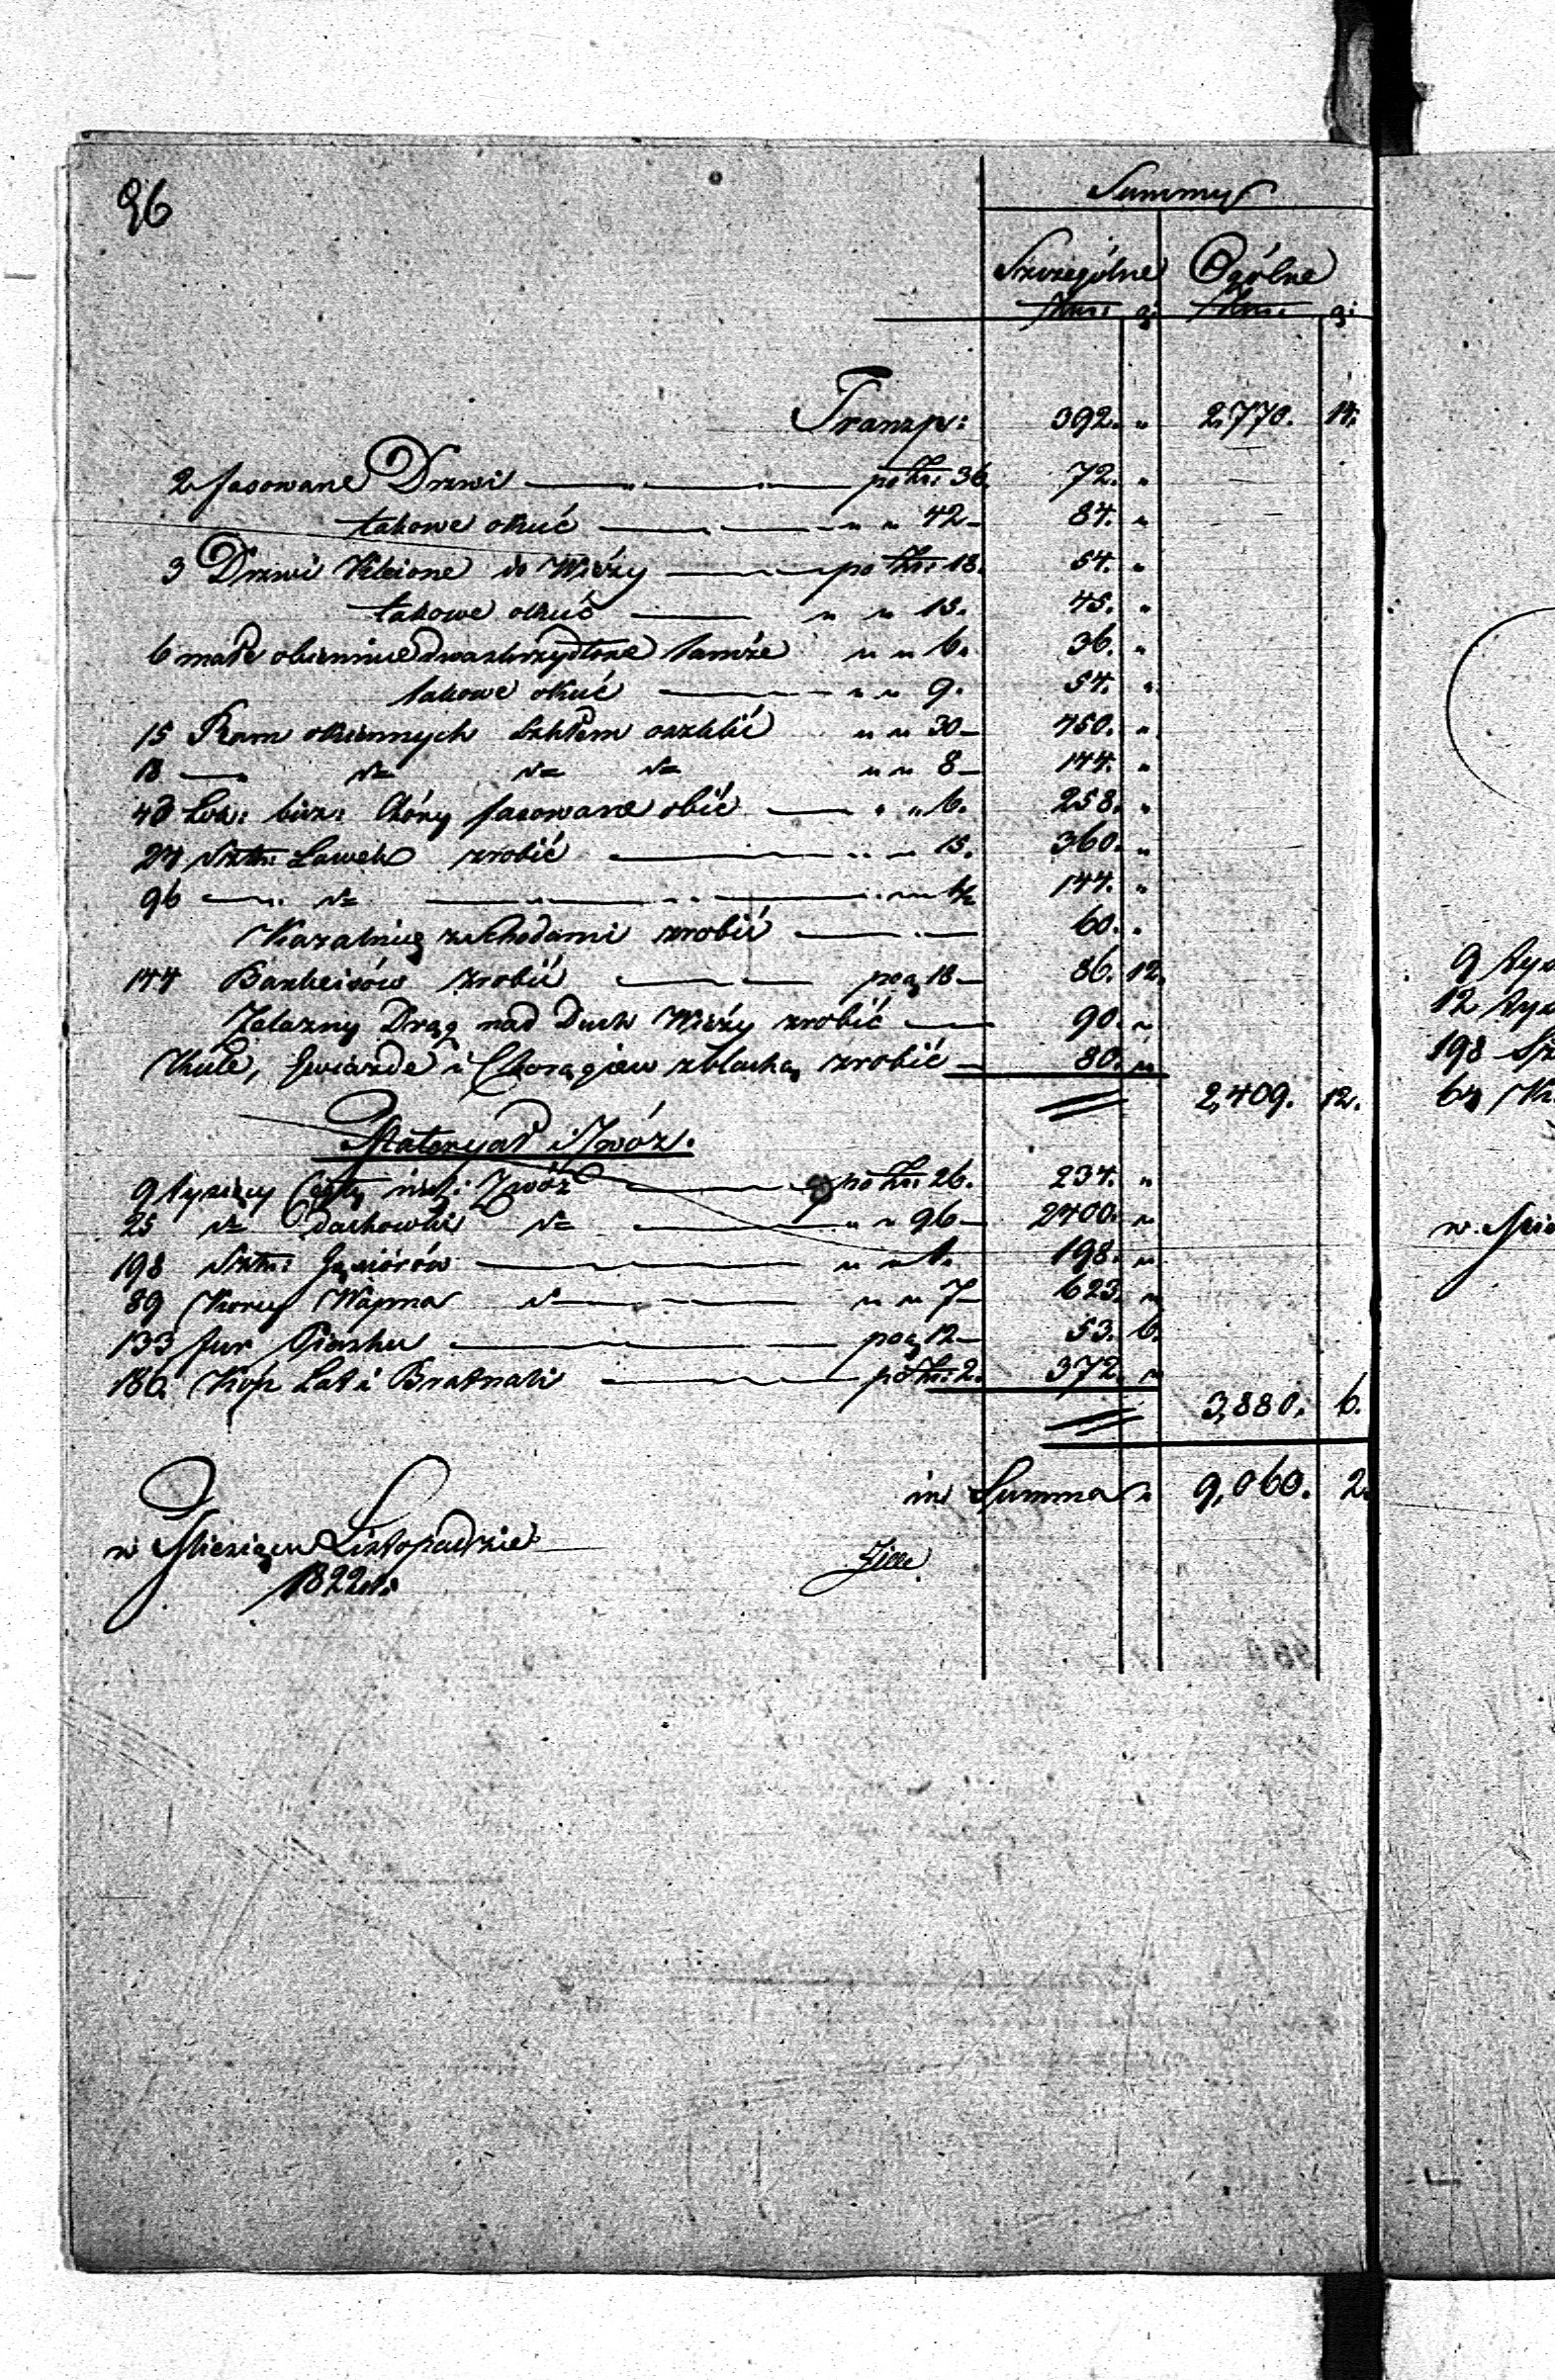 96
Summy
Szczególne Ogólne
Złtt: g: Złtt: g:
Transp: 392. " 2,770. 14.
2 fasowane Drzwi po Zł: 36. 72. "
takowe okuć " " 42 84. "
3 Drzwi Kleione do Wieży po Zł: 18. 54. "
takowe okuć " " 15. 45. "
6 małe okiennice dwaskrzydłowe tamże " " 6. 36. "
takowe okuć " " 9. 54. "
15 Ram okiennych Szkłem oszklić " " 30 450. "
18 — d= d= d= " " 8 144. "
43 Łok: bież: Chóry fasowane obić " " 6. 258. "
24 Sztu: Ławek zrobić " " 15. 360. "
96 — d= " " 1½ 144. "
Kazalnicę z schodami zrobić 60. "
144 zrobić po g 18 86. 12.
Żelazny Drąg nad Dach Wieży zrobić 90. "
Kule, Gwiazdę i Chorągiew z blachą zrobić 80. "
2,409. 12.
Materyał i Zwóz.
9 tysięcy Cegły Zwóz po Zł: 26. 234. "
25 d= Dachówki d= " " 96 2400. "
198 Sztu: Gąsiorów " " 1. 198. "
89 Korcy Wapna d= " " 7 623. "
133 fur Piasku po g 12 53. 6.
186. Kóp Łat i Bratnali po Zł: 2. 372. "
3,880. 6.
in Summa " 9,060. 2.
w Miesiącu Listopadzie
1822 r.
Hille
9 tys
12 tys
198 Sz
64 K
w Mie